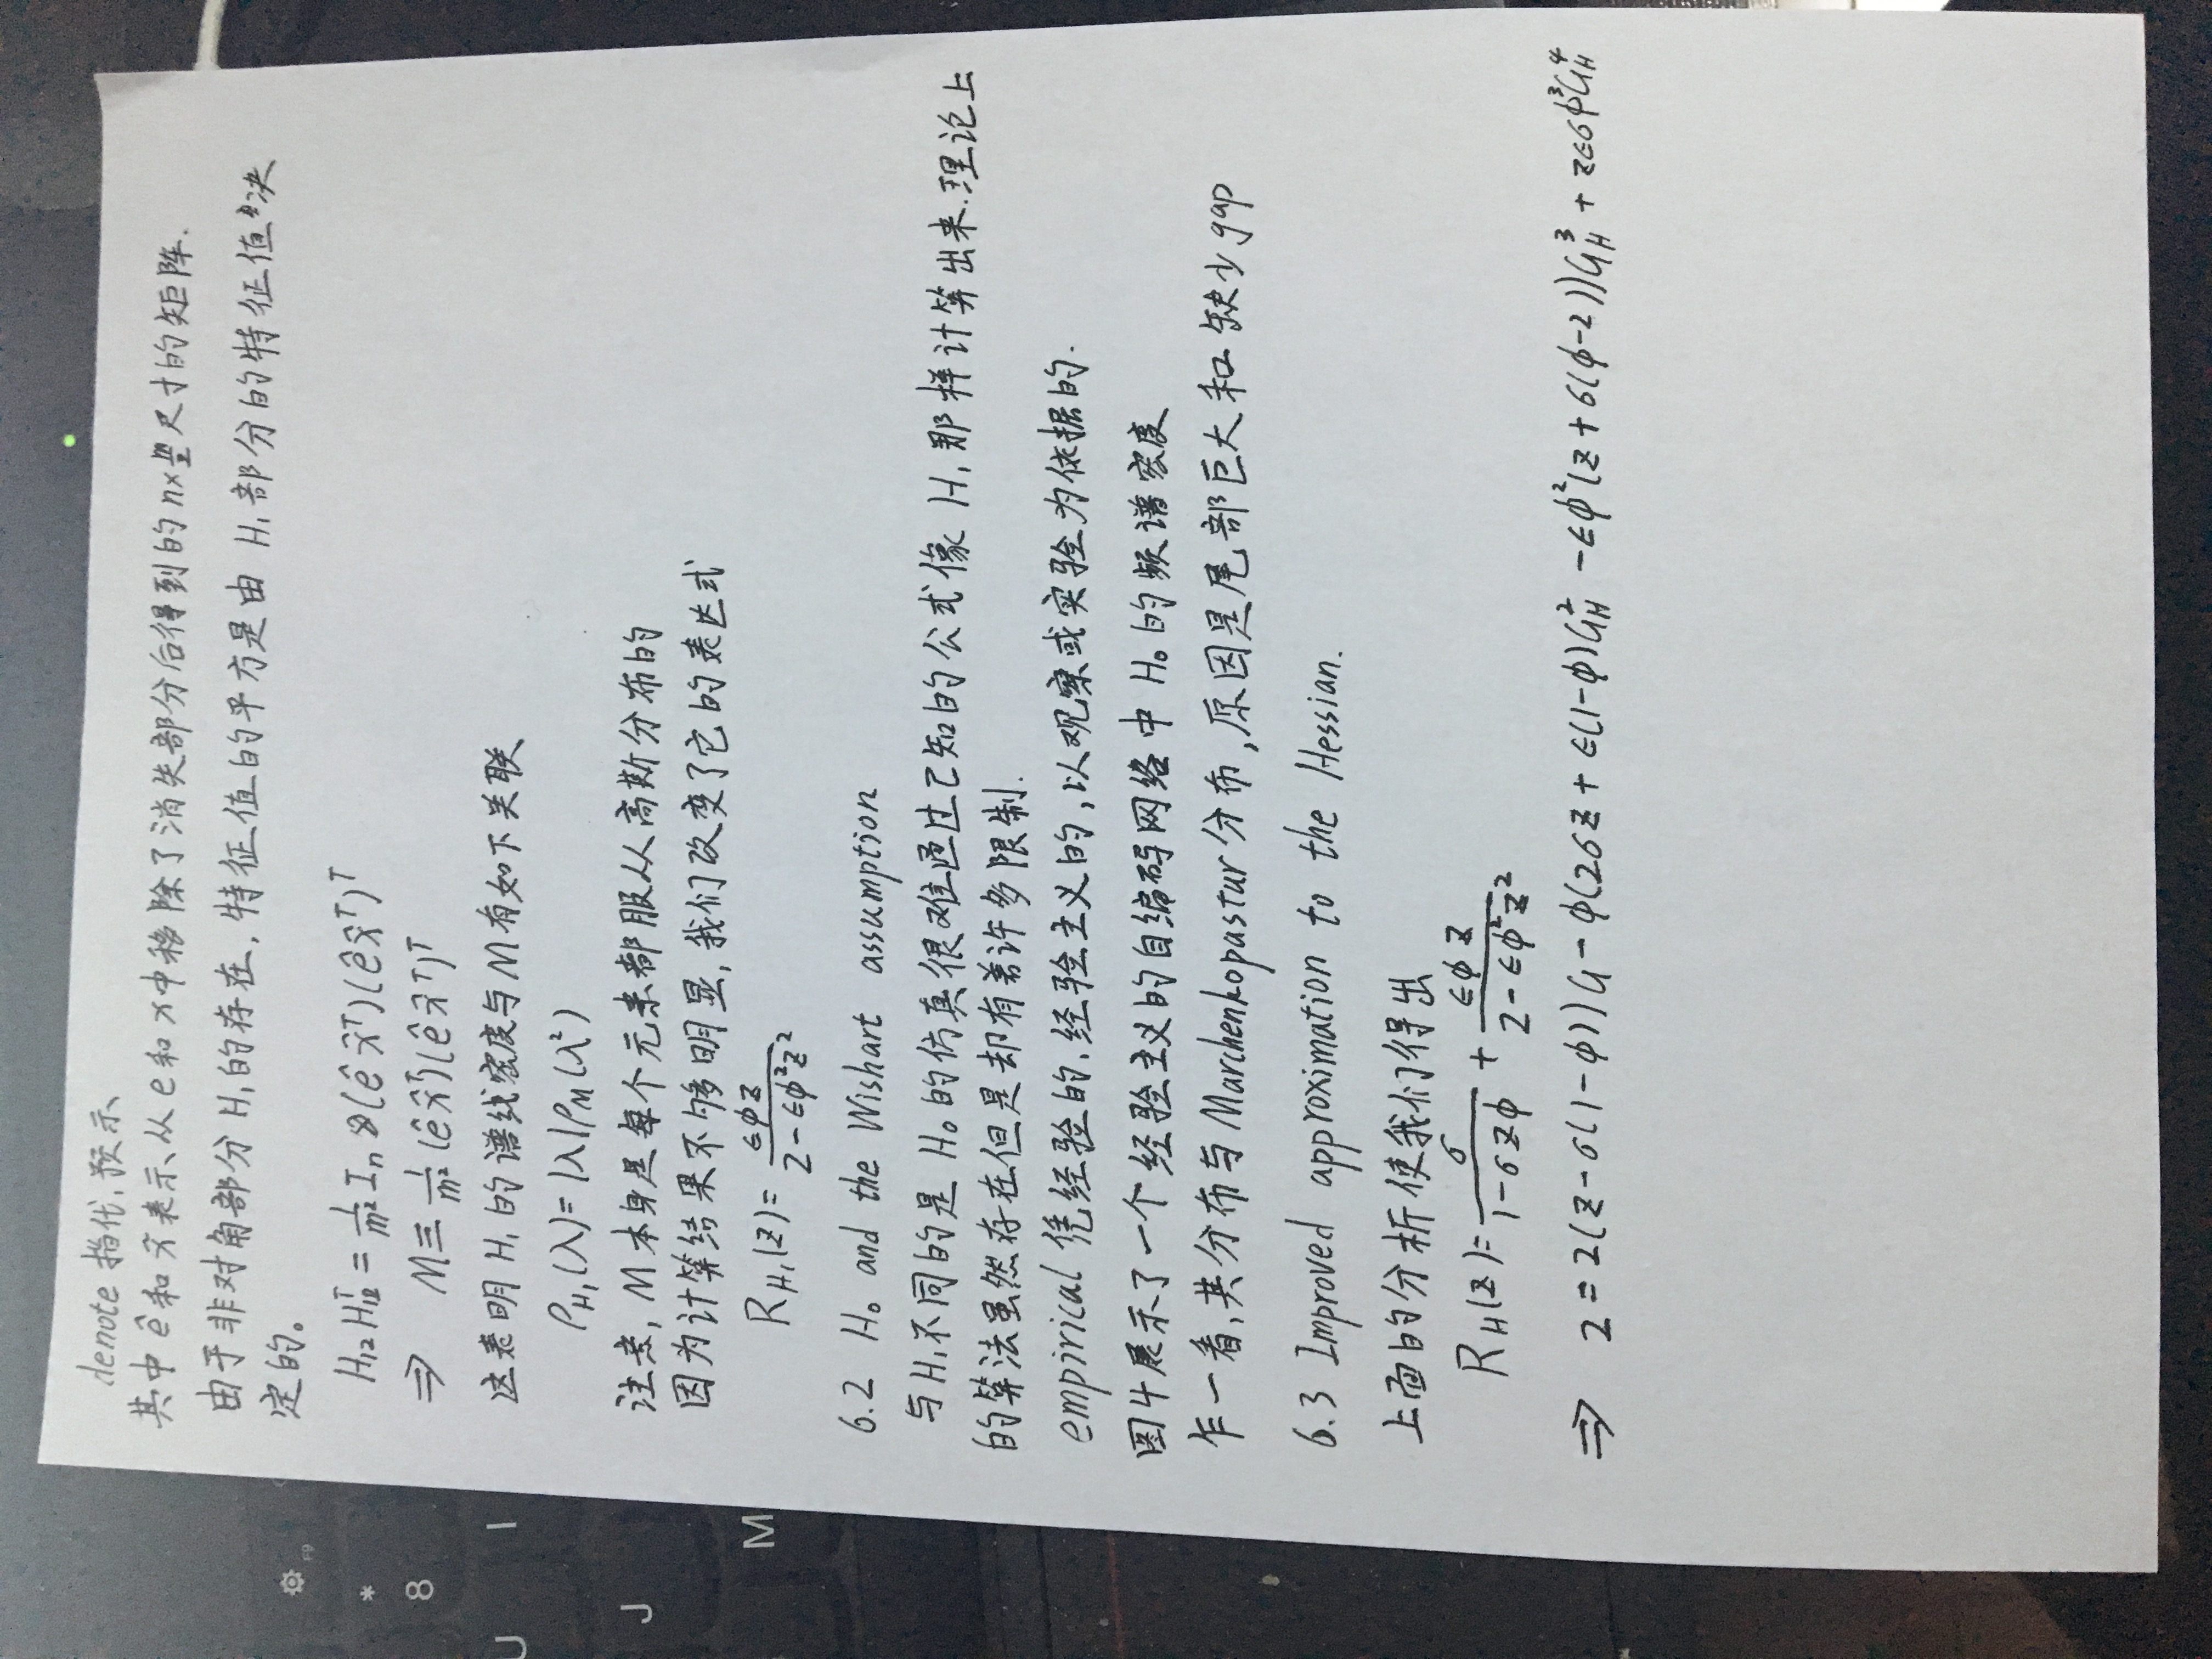 denote 指代,预示
其中 ê和 x̂ 表示从 e 和 x 中移除了消失部分后得到的 n×m/2 尺寸的矩阵.
由于非对角部分 H₁的存在, 特征值的平方是由 H₁部分的特征值决
定的。
H₁₂H₁₂ᵀ = 1/m² Iₙ ⊗ (ê x̂ᵀ)(ê x̂ᵀ)ᵀ
⇒ M ≡ 1/m² (ê x̂ᵀ)(ê x̂ᵀ)ᵀ
这表明 H₁ 的谱线密度与 M 有如下关联
ρ_H₁(λ) = |λ|ρ_M(λ²)
注意, M 本身是每个元素都服从高斯分布的
因为计算结果不够明显, 我们改变了它的表达式
R_H₁(z) = εϕz / (2 - εϕ²z²)
6.2 H₀ and the Wishart assumption
与H₁不同的是 H₀ 的仿真很难通过已知的公式像 H₁ 那样计算出来.理论上
的算法虽然存在但是却有着许多限制.
empirical 凭经验的,经验主义的,以观察或实验为依据的.
图4展示了一个经验主义的自编码网络中 H₀ 的频谱密度
乍一看,其分布与 Marchenkopastur 分布,原因是尾部巨大和缺少gap
6.3 Improved approximation to the Hessian.
上面的分析使我们得出
R_H(z) = σ / (1 - σzϕ) + εϕz / (2 - εϕ²z²)
⇒ 2 = 2(z - σ(1-ϕ))G - ϕ(2σz + ε(1-ϕ)G_H² - εϕ²(z + σ(ϕ-2))G_H³ + zεσϕ³G_H⁴
F9
*
8
U
I
J
M